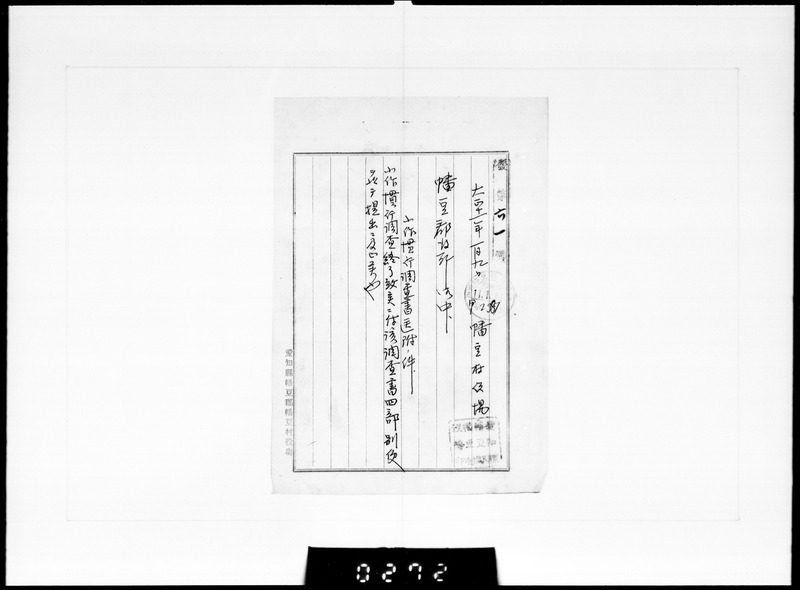 第六一號
大正十一年一月九日
幡豆村役場
幡豆郡役所御中
小作慣行調査書送附ノ件
小作慣行調査終了致候ニ付該調査書四部別便
ヲ以テ提出ニ及候也
愛知縣幡豆郡幡豆村役場
0272